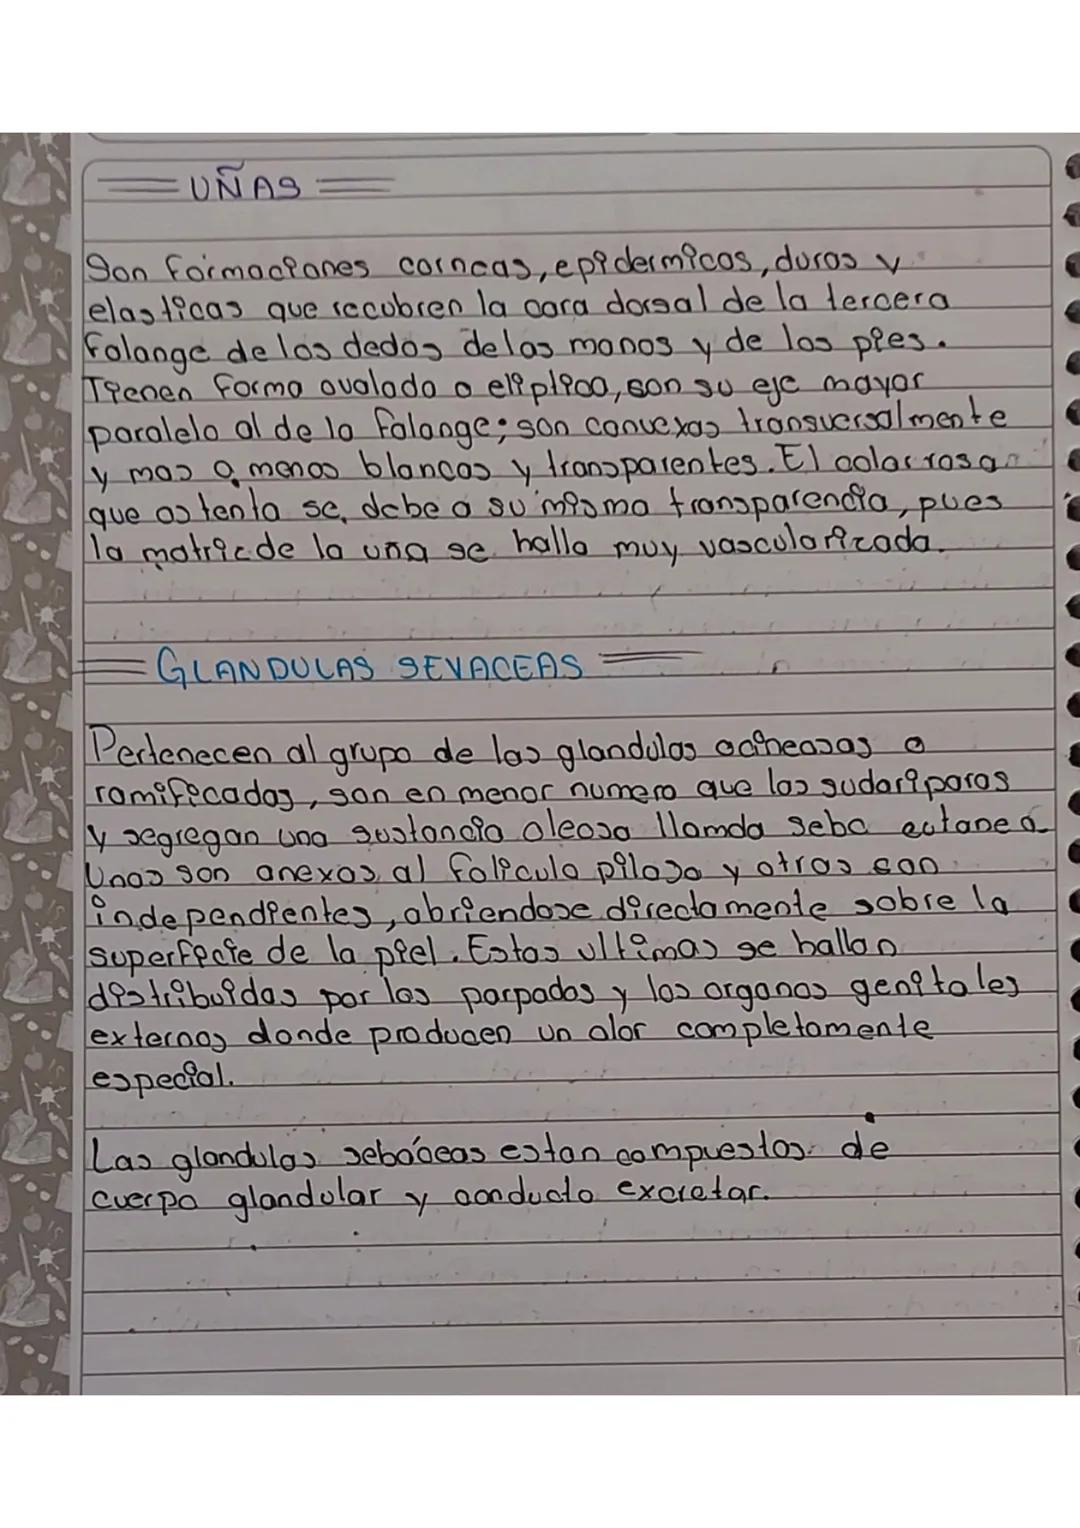 UÑAS
Son formaciones corneas, epidermicas, duras y
elasticas que recubren la cara dorsal de la tercera
falange de los dedos de las manos y de los pies.
Tienen forma ovalada o eliptica, son su eje mayor
paralelo al de la falange; son convexas transversalmente
y mas o menos blancas y transparentes. El color rosa
que ostenta se debe a su misma transparencia, pues
la matriz de la uña se halla muy vascularizada.
GLANDULAS SEVACEAS
Pertenecen al grupo de las glandulas acineasas o
ramificadas, son en menor numero que las sudariparas
y segregan una sustancia oleosa llamda sebo cutaneo.
Unas son anexas al foliculo piloso y otras son
independientes, abriendose directamente sobre la
superficie de la piel. Estas ultimas se hallan
distribuidas por los parpados y los organos genitales
externos donde producen un olor completamente
especial.
Las glandulas sebáceas estan compuestas de
cuerpo glandular y conducto excretar.